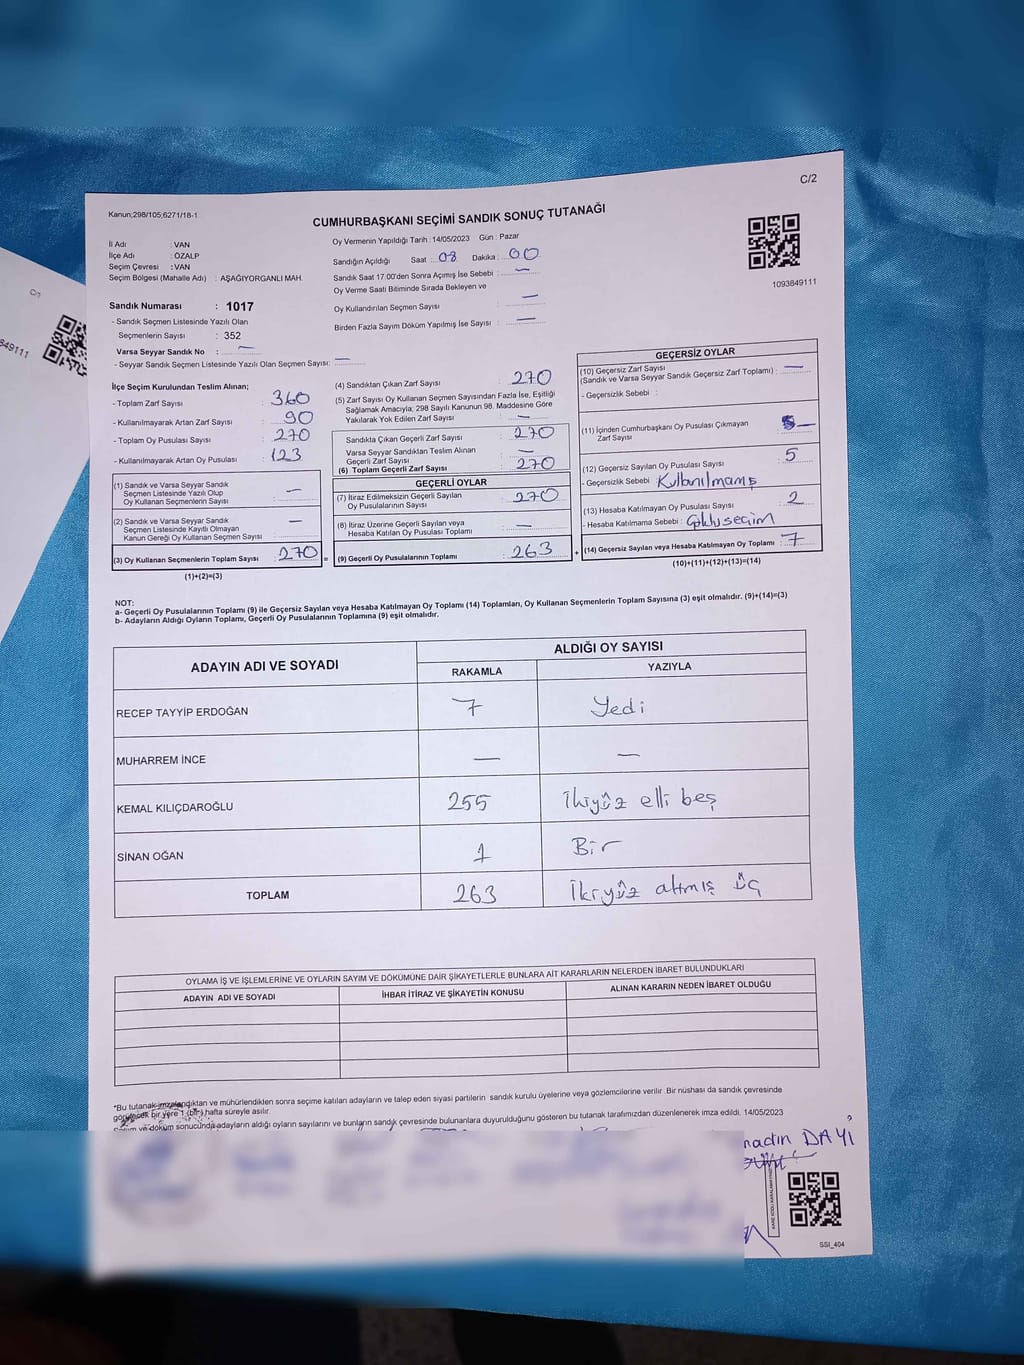 C/2
Kanun;298/105;6271/18-1
CUMHURBAŞKANI SEÇİMİ SANDIK SONUÇ TUTANAĞI
İl Adı : VAN
İlçe Adı : ÖZALP
Seçim Çevresi : VAN
Seçim Bölgesi (Mahalle Adı) : AŞAĞIYORGANLI MAH.
Oy Vermenin Yapıldığı Tarih : 14/05/2023 Gün : Pazar
Sandığın Açıldığı Saat : 08 Dakika : 00
Sandık Saat 17:00'den Sonra Açımış İse Sebebi : —
Oy Verme Saati Bitiminde Sırada Bekleyen ve
Oy Kullandırılan Seçmen Sayısı —
Birden Fazla Sayım Döküm Yapılmış İse Sayısı : —
1093849111
Sandık Numarası : 1017
- Sandık Seçmen Listesinde Yazılı Olan
Seçmenlerin Sayısı : 352
Varsa Seyyar Sandık No : —
- Seyyar Sandık Seçmen Listesinde Yazılı Olan Seçmen Sayısı: —
İlçe Seçim Kurulundan Teslim Alınan;
- Toplam Zarf Sayısı : 360
- Kullanılmayarak Artan Zarf Sayısı : 90
- Toplam Oy Pusulası Sayısı : 270
- Kullanılmayarak Artan Oy Pusulası : 123
(1) Sandık ve Varsa Seyyar Sandık
Seçmen Listesinde Yazılı Olup
Oy Kullanan Seçmenlerin Sayısı —
(2) Sandık ve Varsa Seyyar Sandık
Seçmen Listesinde Kayıtlı Olmayan
Kanun Gereği Oy Kullanan Seçmen Sayısı —
(3) Oy Kullanan Seçmenlerin Toplam Sayısı : 270 =
(1)+(2)=(3)
(4) Sandıktan Çıkan Zarf Sayısı : 270
(5) Zarf Sayısı Oy Kullanan Seçmen Sayısından Fazla İse, Eşitliği
Sağlamak Amacıyla; 298 Sayılı Kanunun 98. Maddesine Göre
Yakılarak Yok Edilen Zarf Sayısı : —
Sandıkta Çıkan Geçerli Zarf Sayısı : 270
Varsa Seyyar Sandıktan Teslim Alınan
Geçerli Zarf Sayısı : —
(6) Toplam Geçerli Zarf Sayısı : 270
GEÇERLİ OYLAR
(7) İtiraz Edilmeksizin Geçerli Sayılan
Oy Pusulasının Sayısı : 270
(8) İtiraz Üzerine Geçerli Sayılan veya
Hesaba Katılan Oy Pusulası Toplamı : —
(9) Geçerli Oy Pusulalarının Toplamı : 263 +
GEÇERSİZ OYLAR
(10) Geçersiz Zarf Sayısı
(Sandık ve Varsa Seyyar Sandık Geçersiz Zarf Toplamı) : —
- Geçersizlik Sebebi :
(11) İçinden Cumhurbaşkanı Oy Pusulası Çıkmayan
Zarf Sayısı : —
(12) Geçersiz Sayılan Oy Pusulası Sayısı : 5
- Geçersizlik Sebebi : Kullanılmamış
(13) Hesaba Katılmayan Oy Pusulası Sayısı : 2
- Hesaba Katılmama Sebebi : Çoklu seçim
(14) Geçersiz Sayılan veya Hesaba Katılmayan Oy Toplamı : 7
(10)+(11)+(12)+(13)=(14)
NOT:
a- Geçerli Oy Pusulalarının Toplamı (9) ile Geçersiz Sayılan veya Hesaba Katılmayan Oy Toplamı (14) Toplamları, Oy Kullanan Seçmenlerin Toplam Sayısına (3) eşit olmalıdır. (9)+(14)=(3)
b- Adayların Aldığı Oyların Toplamı, Geçerli Oy Pusulalarının Toplamına (9) eşit olmalıdır.
ADAYIN ADI VE SOYADI ALDIĞI OY SAYISI
RAKAMLA YAZIYLA
RECEP TAYYİP ERDOĞAN 7 Yedi
MUHARREM İNCE — —
KEMAL KILIÇDAROĞLU 255 İkiyüz elli beş
SİNAN OĞAN 1 Bir
TOPLAM 263 İkiyüz altmış üç
OYLAMA İŞ VE İŞLEMLERİNE VE OYLARIN SAYIM VE DÖKÜMÜNE DAİR ŞİKAYETLERLE BUNLARA AİT KARARLARIN NELERDEN İBARET BULUNDUKLARI
ADAYIN ADI VE SOYADI İHBAR İTİRAZ VE ŞİKAYETİN KONUSU ALINAN KARARIN NEDEN İBARET OLDUĞU
*Bu tutanak imzalandıktan ve mühürlendikten sonra seçime katılan adayların ve talep eden siyasi partilerin sandık kurulu üyelerine veya gözlemcilerine verilir. Bir nüshası da sandık çevresinde
görülecek bir yere 1 (bir) hafta süreyle asılır.
ve döküm sonucunda adayların aldığı oyların sayılarını ve bunların sandık çevresinde bulunanlara duyurulduğunu gösteren bu tutanak tarafımızdan düzenlenerek imza edildi. 14/05/2023
DAYİ
SSİ_404
C/1
849111